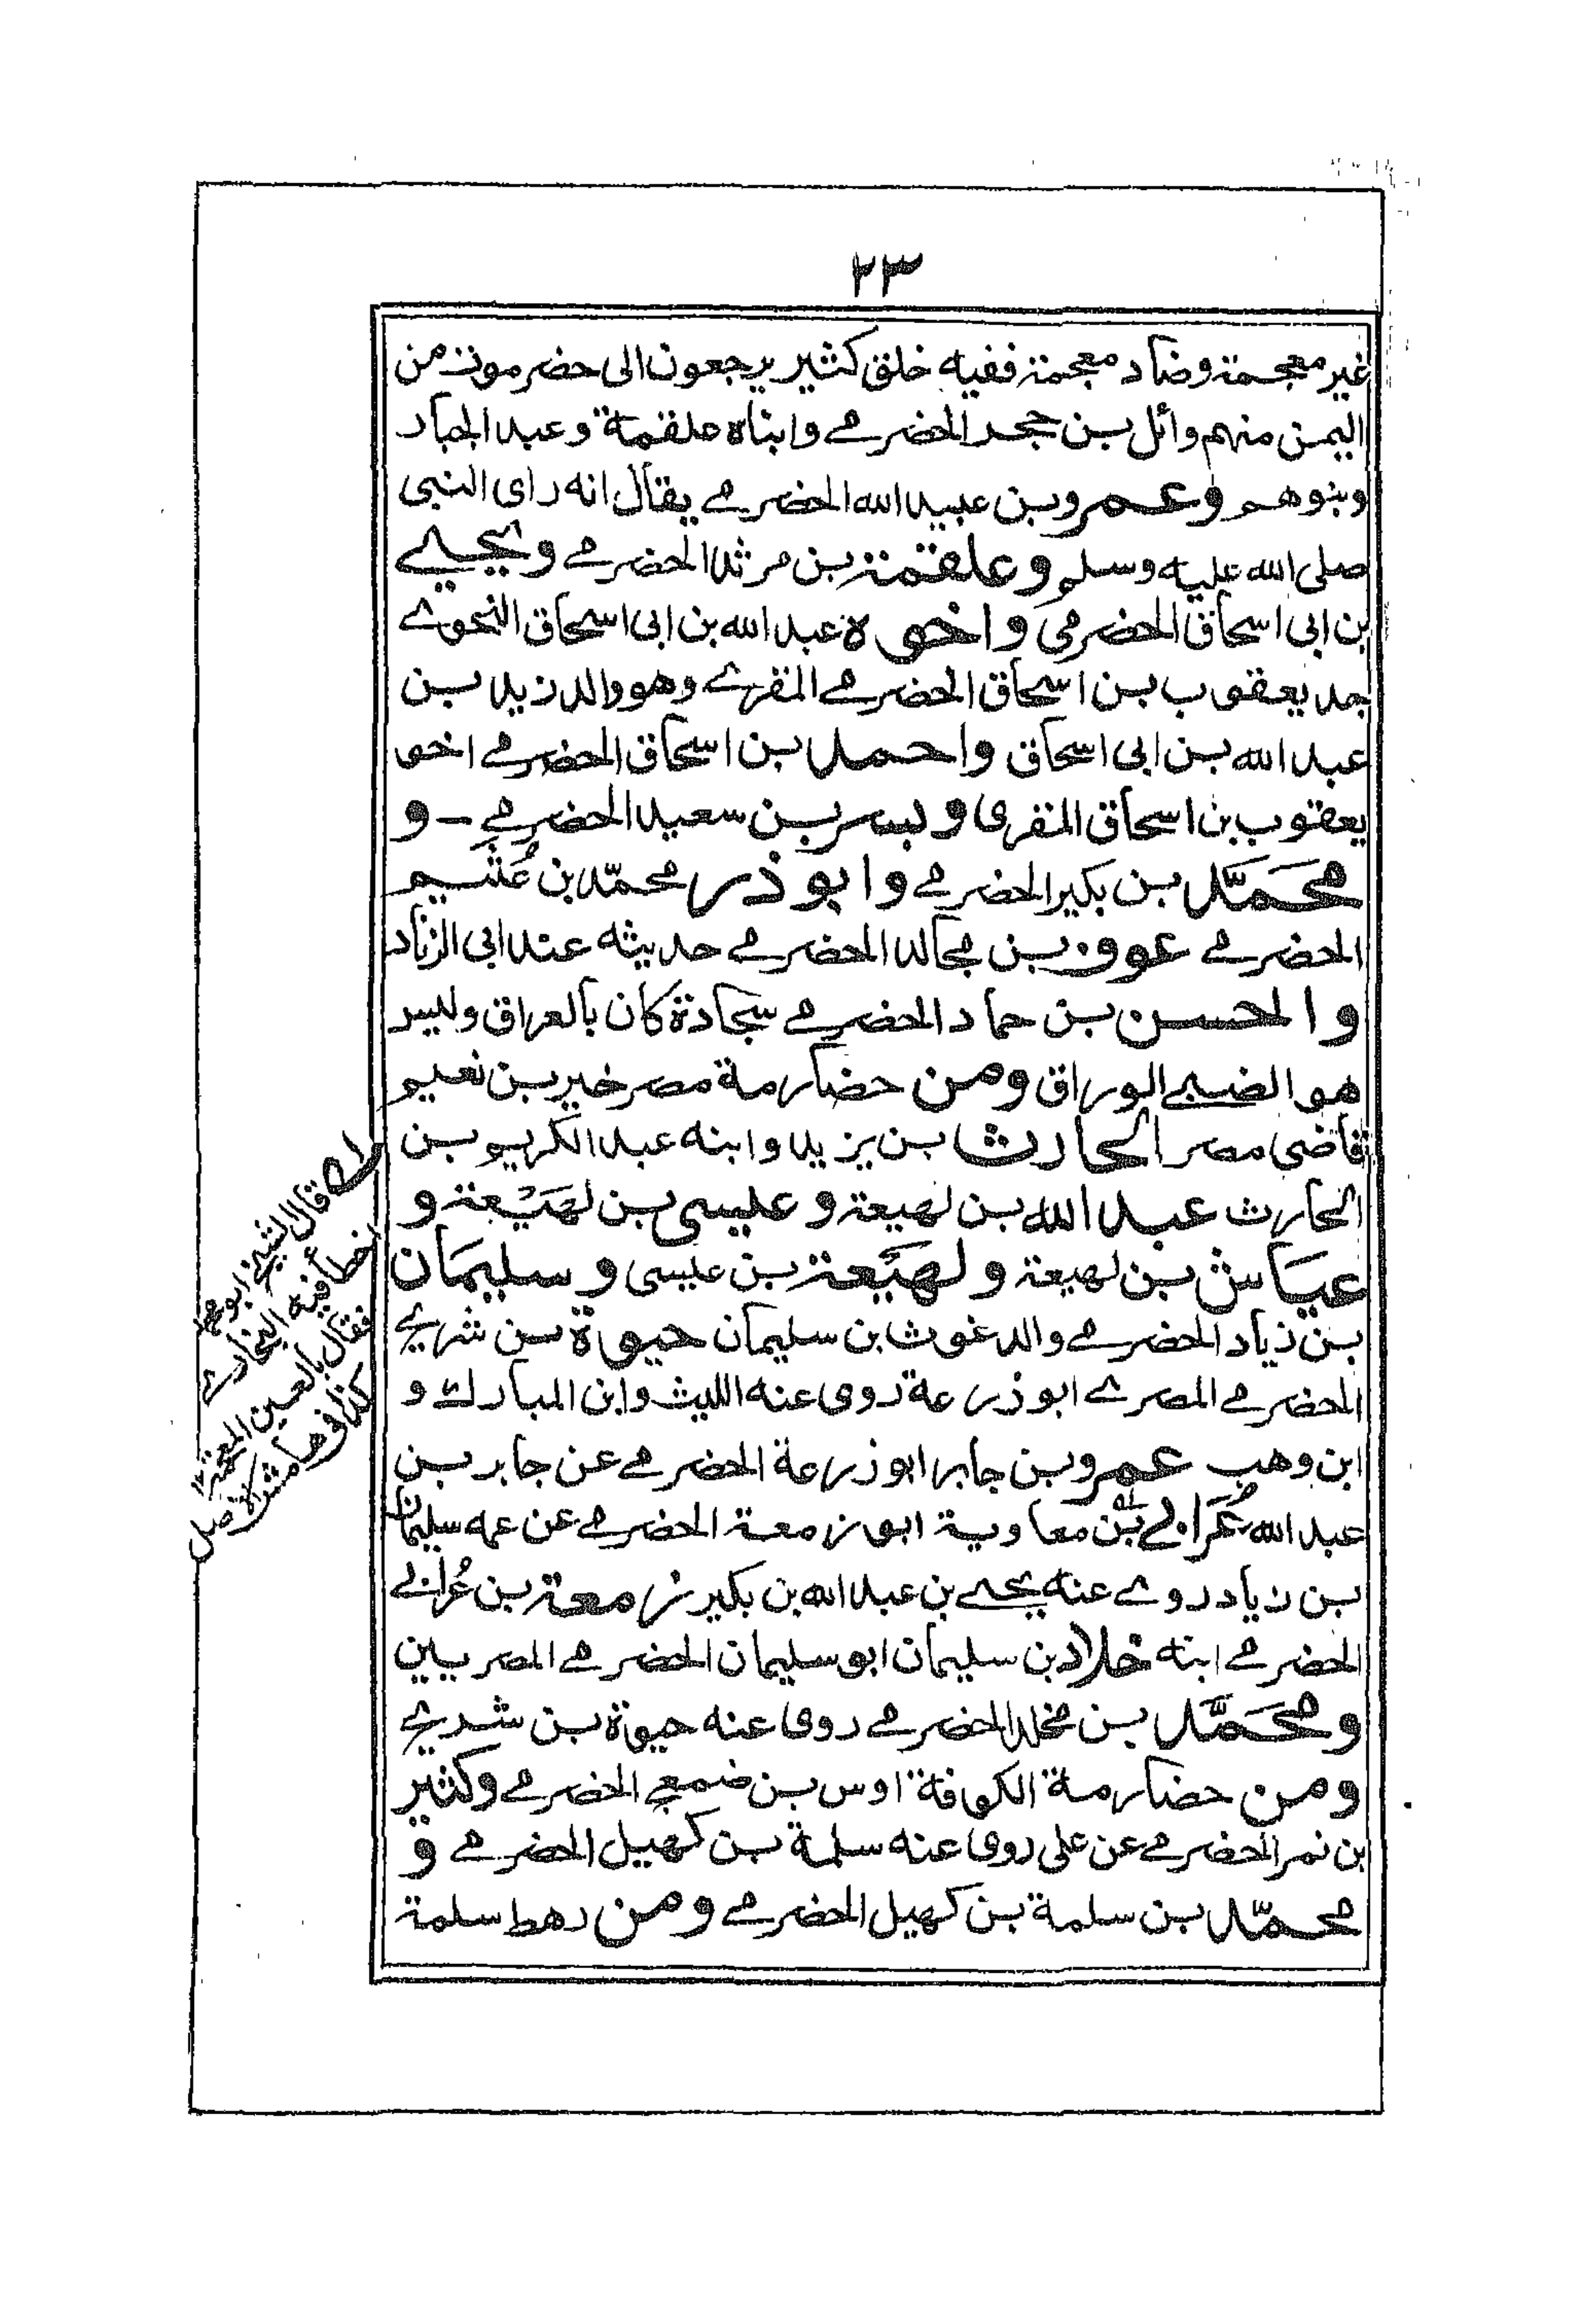 ٢٣
غير معجمة وضاد معجمة ففيه خلق كثير يرجعون الى حضرموت من
اليمن منهم وائل بن حجر الحضرمے وابناه علقمة وعبد الجبار
وبنوهم وعمرو بن عبيد الله الحضرمے يقال انه راى النبي
صلى الله عليه وسلم وعلقمة بن مرثد الحضرمے ويحيے
بن ابى اسحاق الحضرمي واخوه عبد الله بن ابى اسحاق النحوے
جد يعقوب بن اسحاق الحضرمے المقرے وهو والد زيد بن
عبد الله بن ابى اسحاق واحمد بن اسحاق الحضرمے اخو
يعقوب بن اسحاق المقرى وبسر بن سعيد الحضرمے - و
محَمَّد بن بكير الحضرمے وابو ذر محمّد بن عُثَيم
الحضرمے عوف بن مجالد الحضرمے حديثه عند ابى الزناد
والحسن بن حماد الحضرمے سجادة كان بالعراق وليس
هو الضبے الوراق ومن حضارمة مصر خير بن نعيم
قاضى مصر الحارث بن يزيد وابنه عبد الكريم بن
الحارث عبد الله بن لهيعة وعيسى بن لهَيْعة و
عيَاش بن لهيعة ولهَيْعة بن عيسى وسليمَان
بن زياد الحضرمے والد غوث بن سليمان حيوة بن شريح
الحضرمے المصرے ابو زرعة روى عنه الليث وابن المبارك و
ابن وهب عمرو بن جابر ابو زرعة الحضرمے عن جابر بن
عبد الله عُرَابے بن معاوية ابو زمعة الحضرمے عن عمه سليمان
بن زياد روے عنه يحيے بن عبد الله بن بكير زمعة بن عُرابے
الحضرمے ابنه خلاد بن سليمان ابو سليمان الحضرمے المصريين
ومحَمَّد بن مخلد الحضرمے روى عنه حيوة بن شريح
ومن حضارمة الكوفة اوس بن ضمعج الحضرمے وكثير
بن نمر الحضرمے عن على روى عنه سلمة بن كهيل الحضرمے و
محمّد بن سلمة بن كهيل الحضرمے ومن رهط سلمة
له قال الشيخ ابو محمد
اخطأ فيه البخارے
فقال بالغين المعجمة
كذا فى هامش الاصل